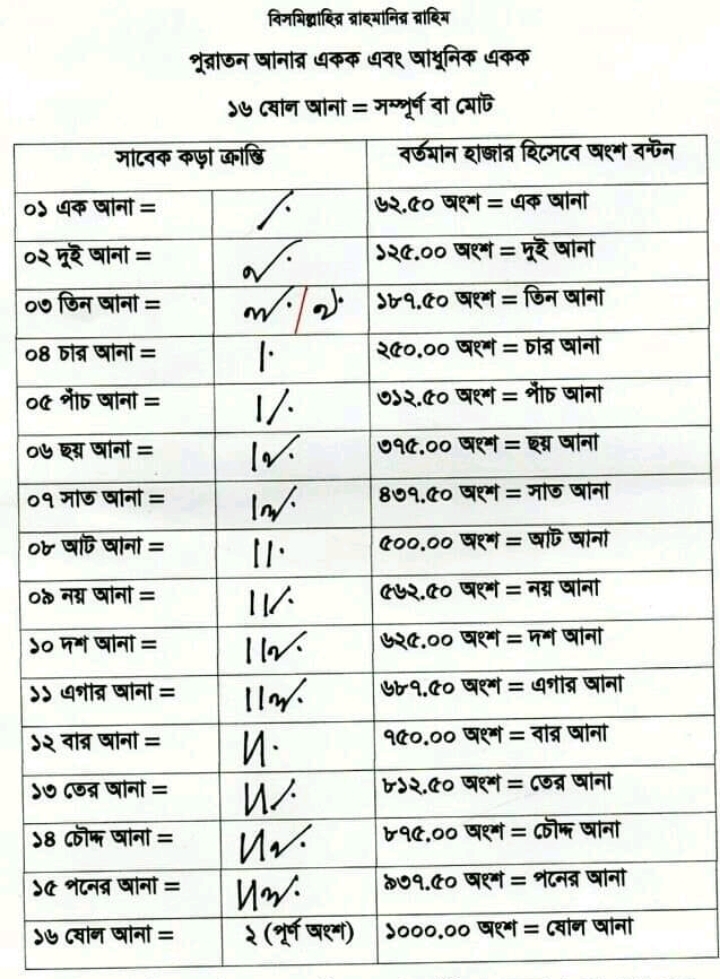 বিসমিল্লাহির রাহমানির রাহিম
পুরাতন আনার একক এবং আধুনিক একক
১৬ ষোল আনা = সম্পূর্ণ বা মোট
সাবেক কড়া ক্রান্তি বর্তমান হাজার হিসেবে অংশ বন্টন
০১ এক আনা = ৴. ৬২.৫০ অংশ = এক আনা
০২ দুই আনা = ১২৫.০০ অংশ = দুই আনা
০৩ তিন আনা = ১৮৭.৫০ অংশ = তিন আনা
০৪ চার আনা = ২৫০.০০ অংশ = চার আনা
০৫ পাঁচ আনা = ৩১২.৫০ অংশ = পাঁচ আনা
০৬ ছয় আনা = ৩৭৫.০০ অংশ = ছয় আনা
০৭ সাত আনা = ৪৩৭.৫০ অংশ = সাত আনা
০৮ আট আনা = ৫০০.০০ অংশ = আট আনা
০৯ নয় আনা = ৫৬২.৫০ অংশ = নয় আনা
১০ দশ আনা = ৬২৫.০০ অংশ = দশ আনা
১১ এগার আনা = ৬৮৭.৫০ অংশ = এগার আনা
১২ বার আনা = ৭৫০.০০ অংশ = বার আনা
১৩ তের আনা = ৮১২.৫০ অংশ = তের আনা
১৪ চৌদ্দ আনা = ৮৭৫.০০ অংশ = চৌদ্দ আনা
১৫ পনের আনা = ৯৩৭.৫০ অংশ = পনের আনা
১৬ ষোল আনা = ২ (পূর্ণ অংশ) ১০০০.০০ অংশ = ষোল আনা